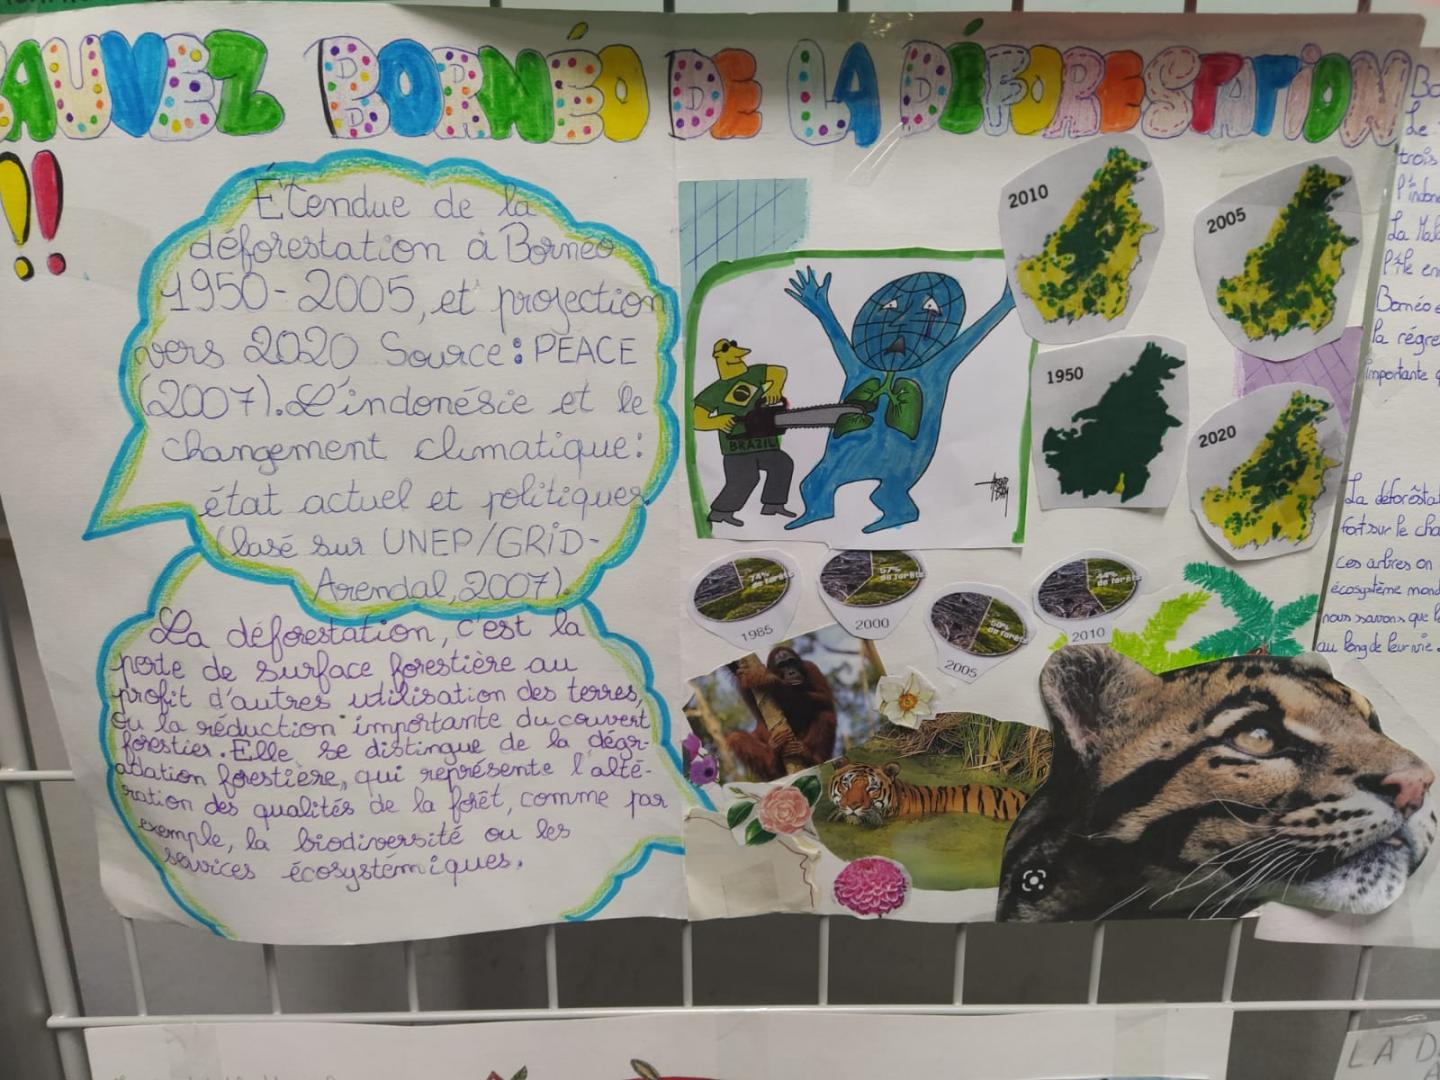 SAUVEZ BORNÉO DE LA DÉFORESTATION
!!
Étendue de la
déforestation à Bornéo
1950-2005, et projection
vers 2020 Source: PEACE
(2007). L'indonésie et le
changement climatique:
état actuel et politiques
(basé sur UNEP/GRiD-
Arendal, 2007).
La déforestation, c'est la
perte de surface forestière au
profit d'autres utilisation des terres,
ou la réduction importante du couvert
forestier. Elle se distingue de la dégr-
adation forestière, qui représente l'alté-
ration des qualités de la forêt, comme par
exemple, la biodiversité ou les
services écosystémiques.
BRAZIL
2010
2005
1950
2020
74%
de forêts
1985
57%
de forêts
2000
50%
de forêts
2005
44%
de forêts
2010
Le
trois
La
l'île
Bornéo
la
importante
La
fort sur le
Ces arbres
écosystème
nous savons que
au long de leur vie
LA